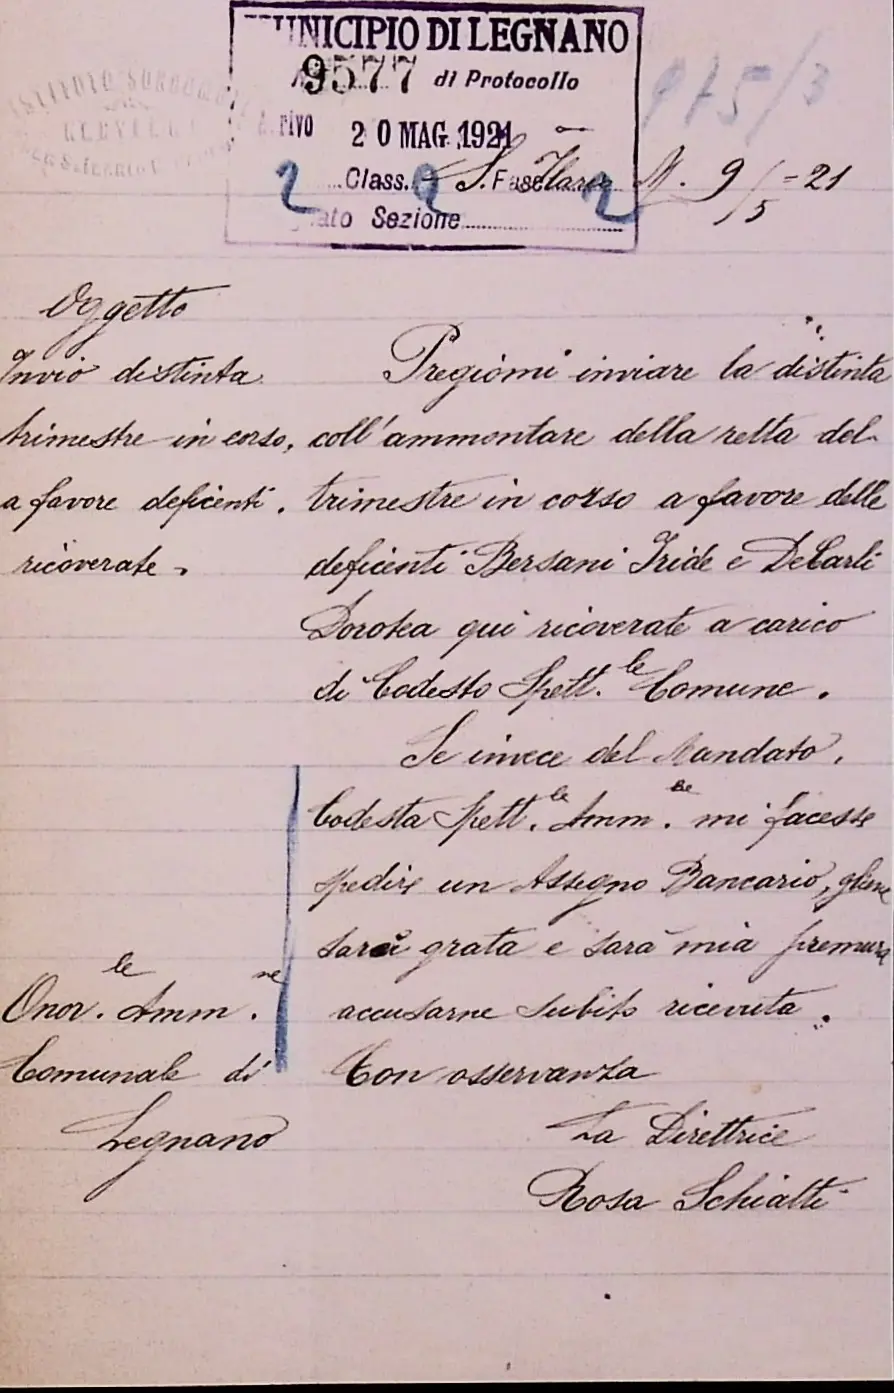 MUNICIPIO DI LEGNANO
9577 di Protocollo
20 MAG. 1921
2 Class. 2 Fasc. 2
Sezione
975/3
S. Ilario M. 9/5-21
Oggetto
Invio distinta
trimestre in corso,
a favore deficenti
ricoverate.
Pregiomi inviare la distinta
coll'ammontare della retta del
trimestre in corso a favore delle
deficenti Bersani Iride e DeCarli
Dorotea qui ricoverate a carico
di Codesto Spett.le Comune.
Se invece del Mandato,
Codesta Spett.le Amm.ne mi facesse
spedire un Assegno Bancario, gliene
sarei grata e sarà mia premura
accusarne subito ricevuta.
Con osservanza
La Direttrice
Rosa Schiatti
Onor.le Amm.ne
Comunale di
Legnano